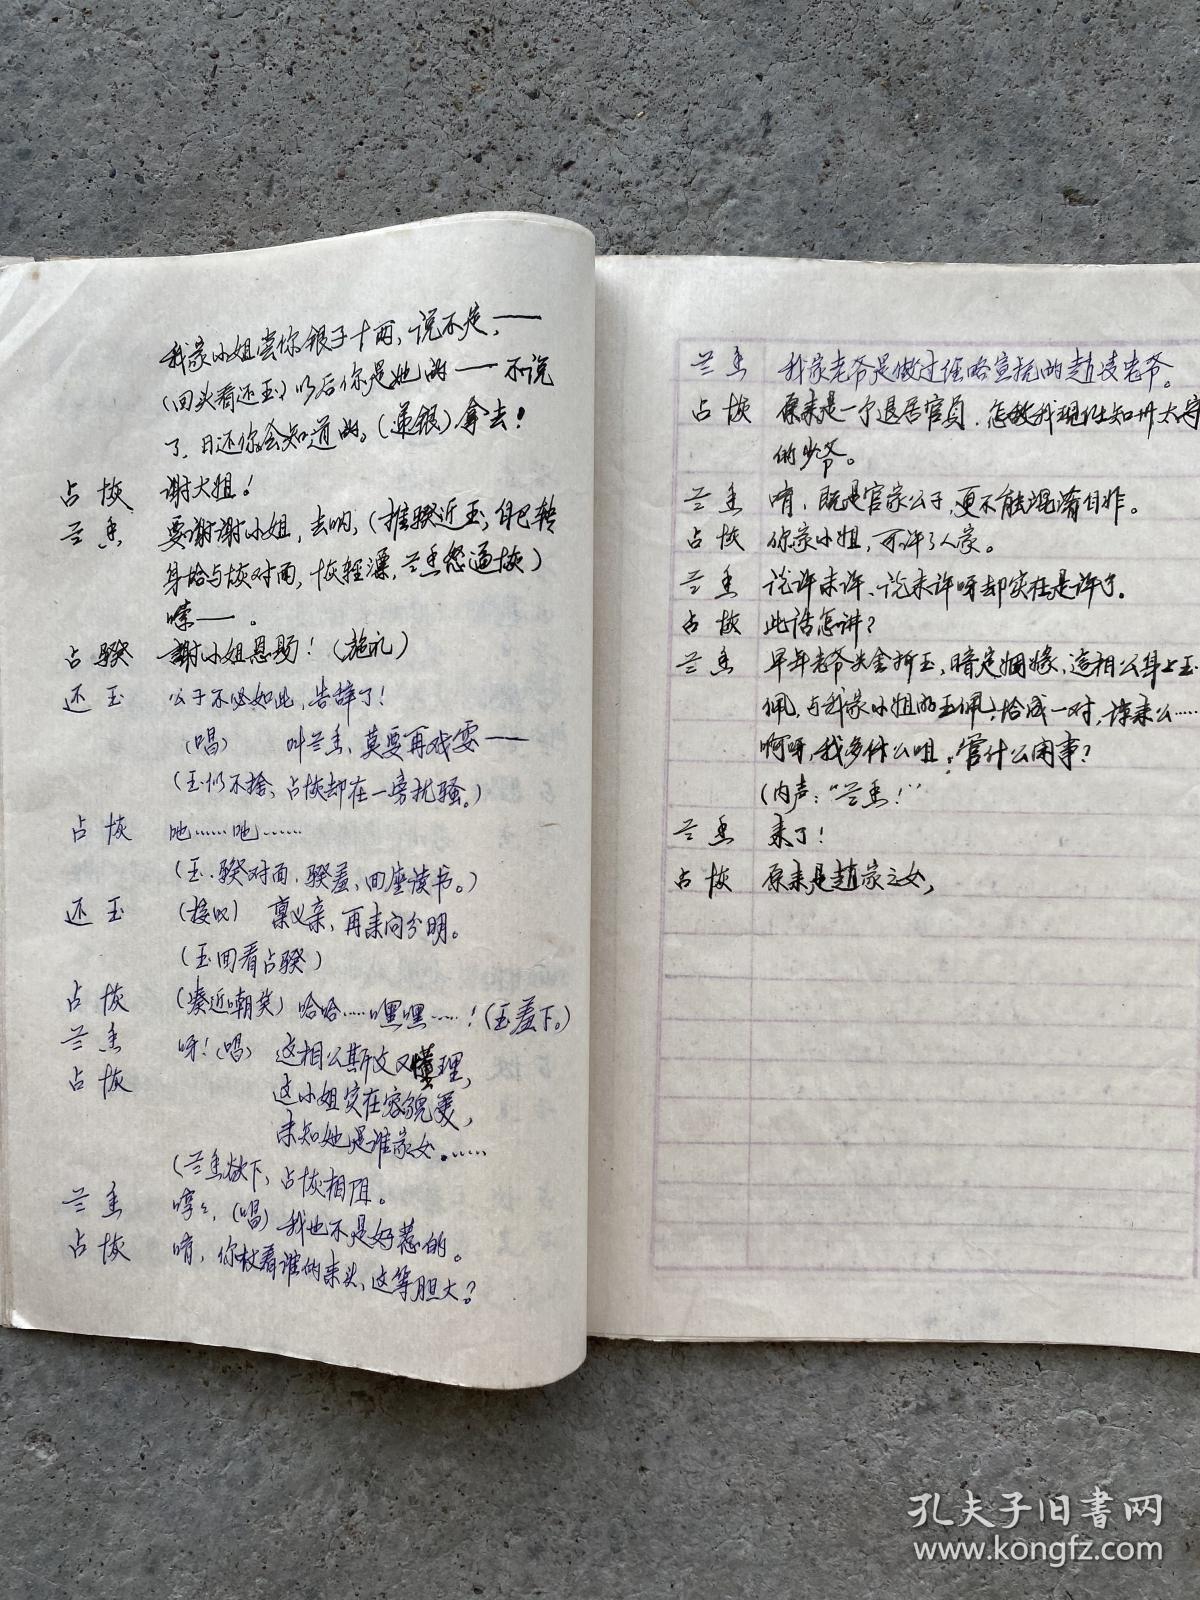 我家小姐尝你银子十两，说不定，——
（回头看还玉）以后你是她的——不说
了，日还你会知道的。（递银）拿去！
占恢 谢大姐！
兰香 要谢谢小姐，去呐，（推骙近玉，自己转
身恰与恢对面，恢轻漂，兰香怒逼恢）
嗦——。
占骙 谢小姐恩赐！（施礼）
还玉 公子不必如此，告辞了！
（唱） 叫兰香，莫要再戏耍——
（玉仍不捨，占恢却在一旁扰骚。）
占恢 吔……吔……
（玉、骙对面，骙羞，回座读书。）
还玉 （接叹） 禀义亲，再来问分明。
（玉回看占骙）
占恢 （凑近嘲笑）哈哈……嘿嘿……！（玉羞下。）
兰香 呀！（唱） 这相公斯文又懂理，
占恢 这小姐实在容貌美，
未知她是谁家女。……
（兰香欲下，占恢相阻。
兰香 哼哼，（唱）我也不是好惹的。
占恢 唷，你杖着谁的来头，这等胆大？
兰香 我家老爷是做过经略宣抚的赵凌老爷。
占恢 原来是一个退居官员，怎敌我现任知州大守
的少爷。
兰香 唷，既是官家公子，更不能混淆自非。
占恢 你家小姐，可许了人家。
兰香 说许未许、说未许呀却实在是许了。
占恢 此话怎讲？
兰香 早年老爷失金折玉，暗定姻缘，这相公身上玉
佩，与我家小姐的玉佩，恰成一对，谅来么……
啊呀，我多什么咀，管什么闲事？
（内声：“兰香！”
兰香 来了！
占恢 原来是赵家之女，
孔夫子旧书网
www.kongfz.com